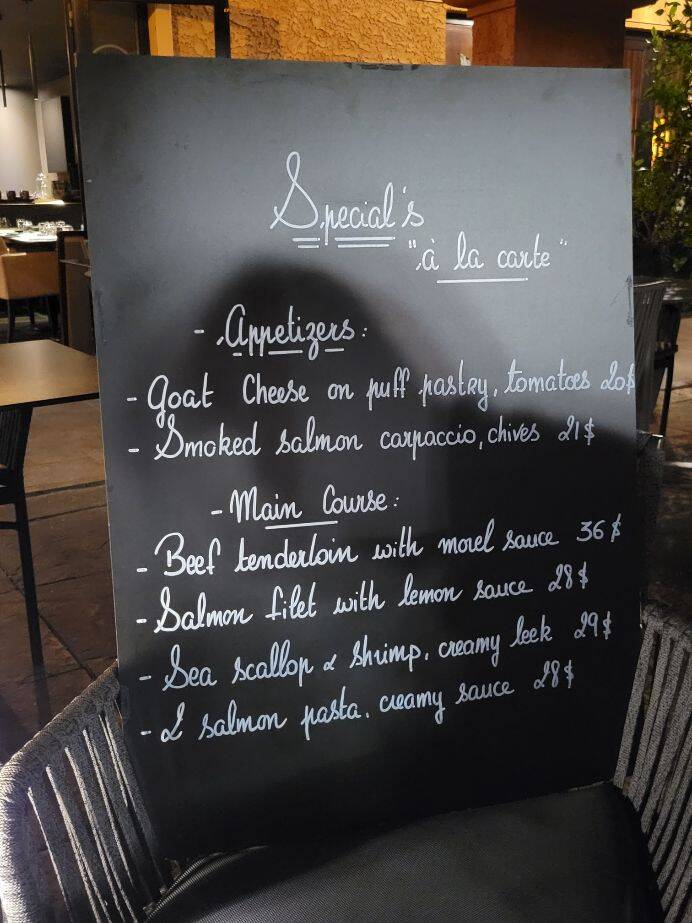 Special's
"à la carte"
- Appetizers:
- Goat Cheese on puff pastry, tomatoes 20$
- Smoked salmon carpaccio, chives 21$
- Main Course:
- Beef tenderloin with morel sauce 36$
- Salmon filet with lemon sauce 28$
- Sea scallop & shrimp, creamy leek 29$
- 2 salmon pasta, creamy sauce 28$